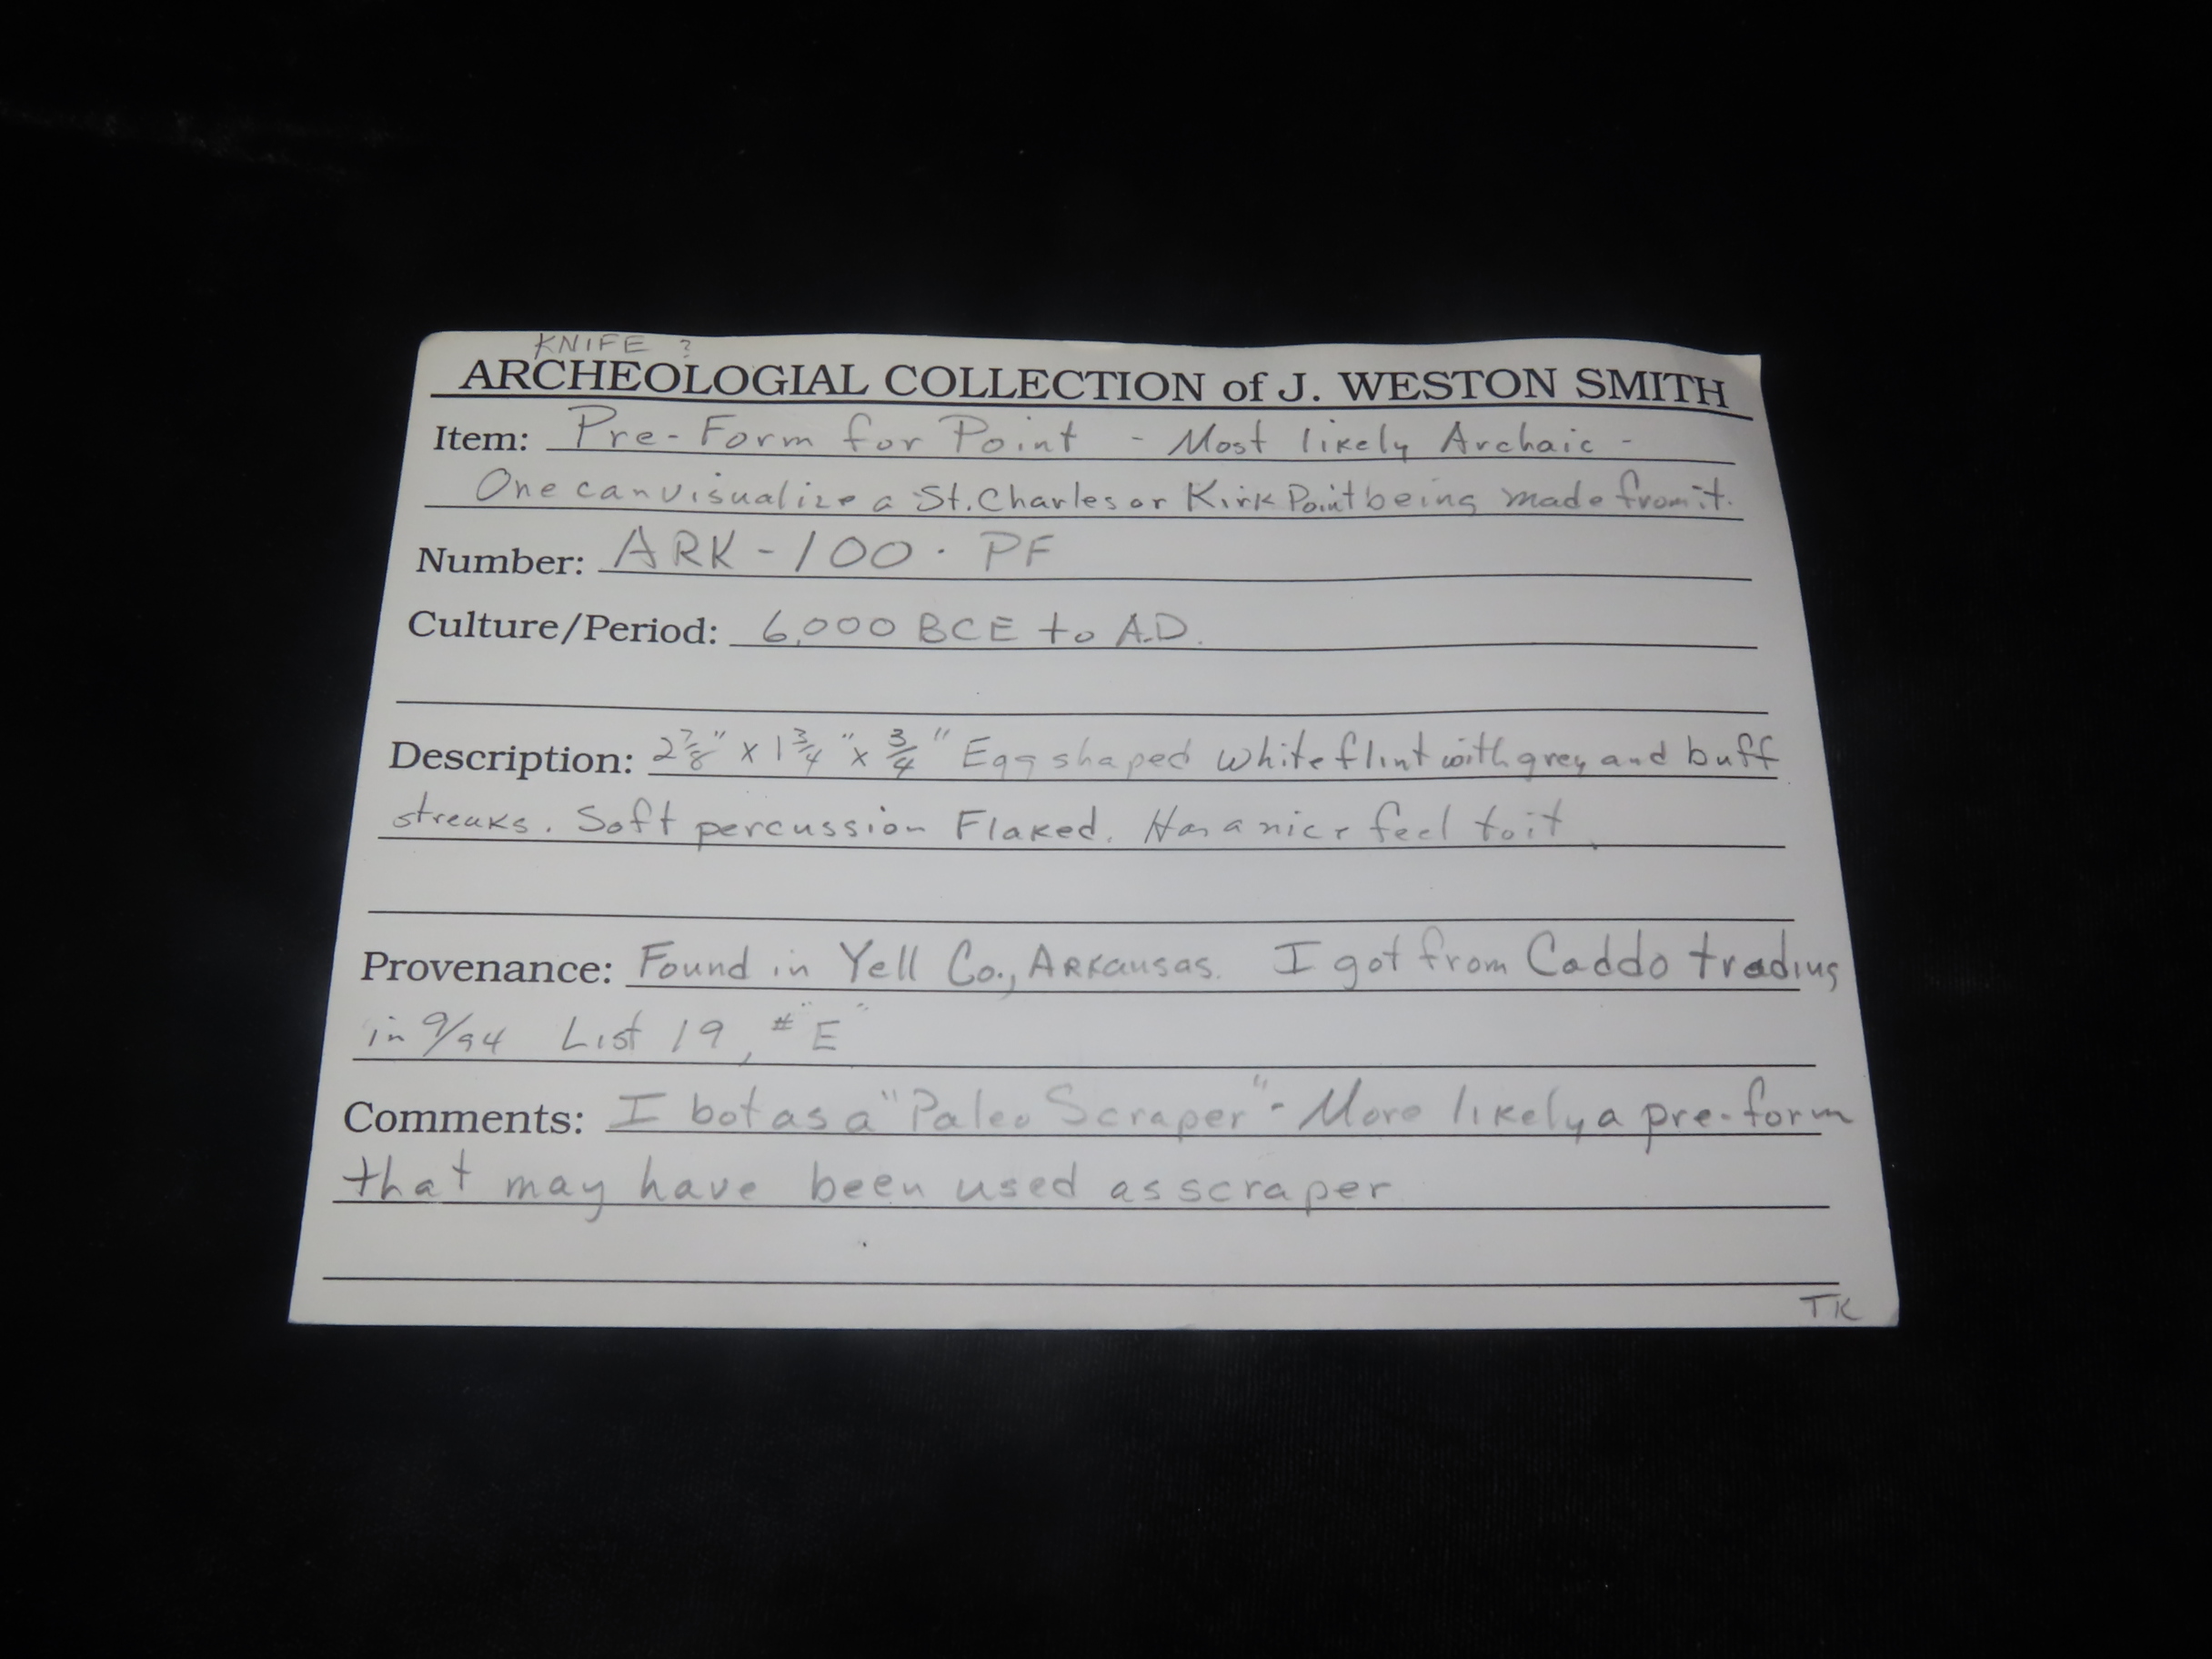 KNIFE ?
ARCHEOLOGIAL COLLECTION of J. WESTON SMITH
Item: Pre-Form for Point - Most likely Archaic -
One can visualize a St. Charles or Kirk Point being made from it.
Number: ARK-100. PF
Culture/Period: 6,000 BCE to A.D.
Description: 2 7/8" x 1 3/4" x 3/4" Egg shaped white flint with grey and buff
streaks. Soft percussion Flaked. Has a nice feel to it.
Provenance: Found in Yell Co., Arkansas. I got from Caddo trading
in 9/94 List 19, # "E"
Comments: I bot as a "Paleo Scraper" - More likely a pre-form
that may have been used as scraper
TK